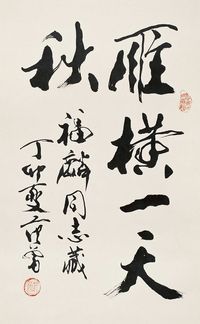 雁横一天
秋
福麟同志藏
丁卯夏范曾